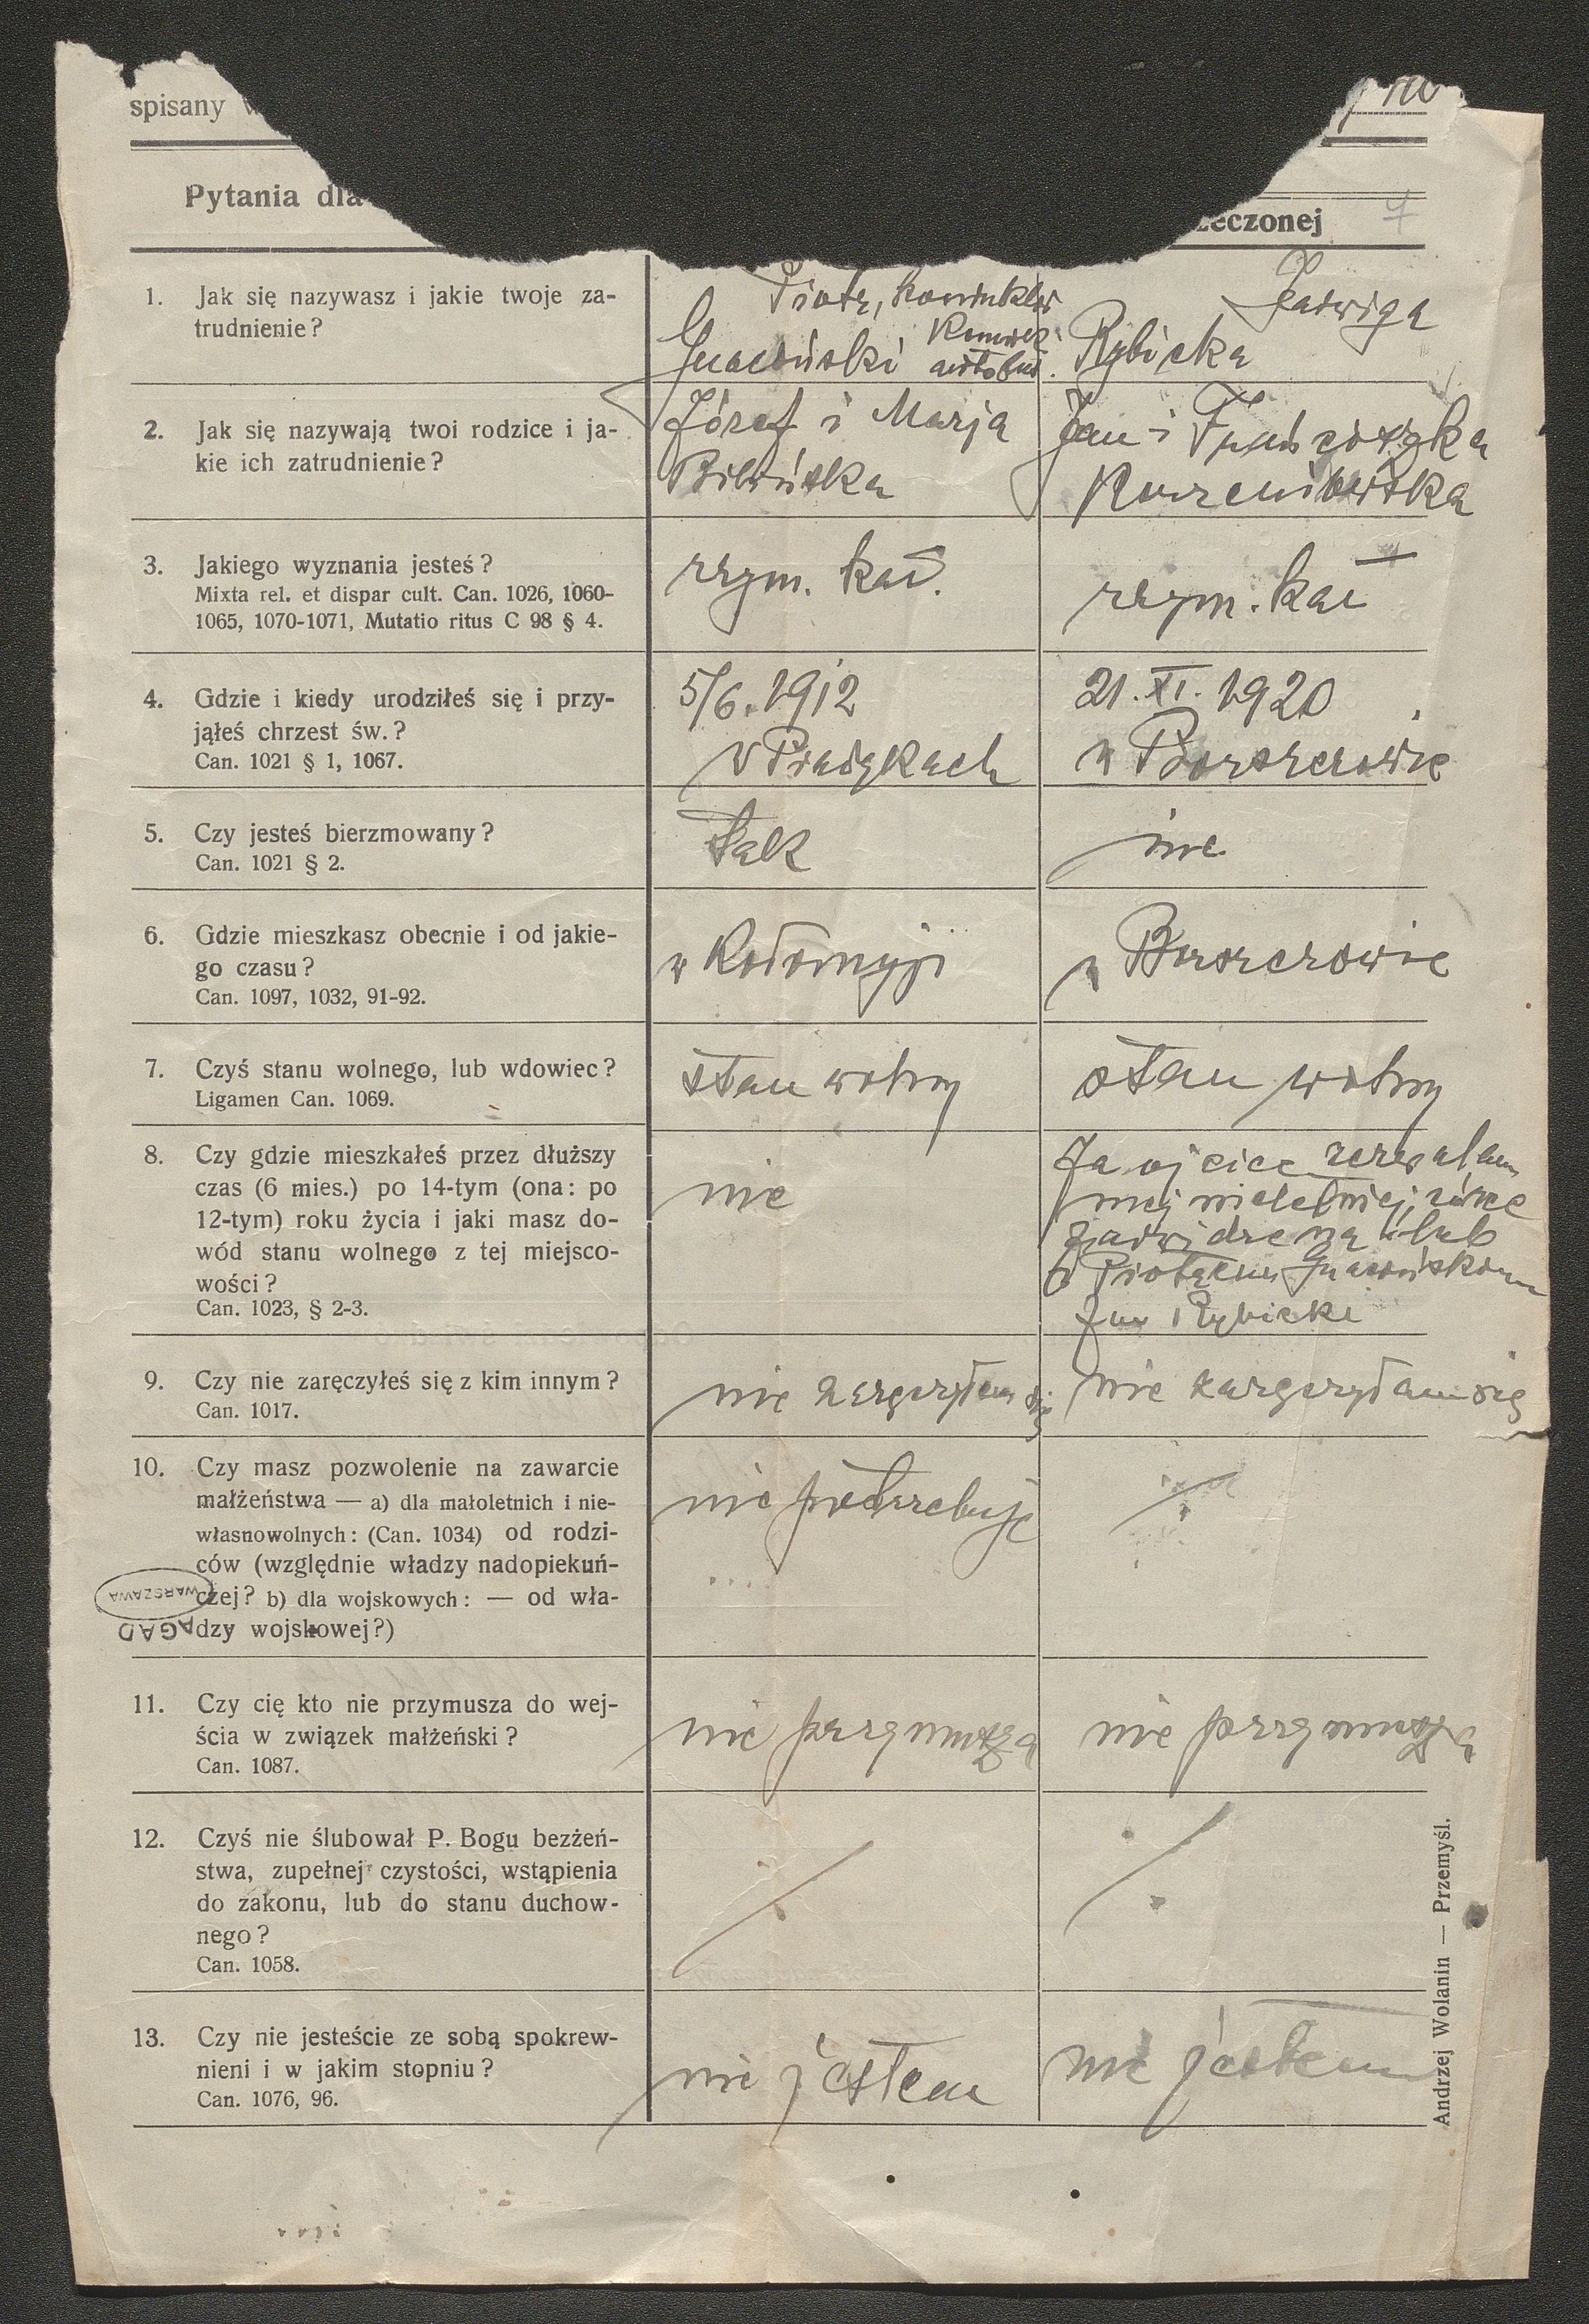 spisany
Pytania dla
zeczonej 7
1. Jak się nazywasz i jakie twoje za-
trudnienie?
Piotr,
autobus.
Jadwiga
Rybicka
2. Jak się nazywają twoi rodzice i ja-
kie ich zatrudnienie?
Józef i Marja
Bilińska
Jan i Franciszka
3. Jakiego wyznania jesteś?
Mixta rel. et dispar cult. Can. 1026, 1060-
1065, 1070-1071, Mutatio ritus C 98 § 4.
rzym. kat.
rzym. kat
4. Gdzie i kiedy urodziłeś się i przy-
jąłeś chrzest św.?
Can. 1021 § 1, 1067.
5/6. 1912
w
21. XI. 1920
w Borszczowie
5. Czy jesteś bierzmowany?
Can. 1021 § 2.
tak
nie
6. Gdzie mieszkasz obecnie i od jakie-
go czasu?
Can. 1097, 1032, 91-92.
w Kołomyji
w Borszczowie
7. Czyś stanu wolnego, lub wdowiec?
Ligamen Can. 1069.
stan wolny
stan wolny
8. Czy gdzie mieszkałeś przez dłuższy
czas (6 mies.) po 14-tym (ona: po
12-tym) roku życia i jaki masz do-
wód stanu wolnego z tej miejsco-
wości?
Can. 1023, § 2-3.
nie
Ja ojciec zezwalam
mej nieletniej córce
Jadwidze na ślub
z Piotrem
Jan Rybicki
9. Czy nie zaręczyłeś się z kim innym?
Can. 1017.
nie zaręczyłem się
nie zaręczyłam się
10. Czy masz pozwolenie na zawarcie
małżeństwa — a) dla małoletnich i nie-
własnowolnych: (Can. 1034) od rodzi-
ców (względnie władzy nadopiekuń-
czej? b) dla wojskowych: — od wła-
dzy wojskowej?)
nie potrzebuję
WARSZAWA
AGAD
11. Czy cię kto nie przymusza do wej-
ścia w związek małżeński?
Can. 1087.
nie przymusza
nie przymusza
12. Czyś nie ślubował P. Bogu bezżeń-
stwa, zupełnej czystości, wstąpienia
do zakonu, lub do stanu duchow-
nego?
Can. 1058.
13. Czy nie jesteście ze sobą spokrew-
nieni i w jakim stopniu?
Can. 1076, 96.
nie jestem
nie jestem
Andrzej Wolanin — Przemyśl.